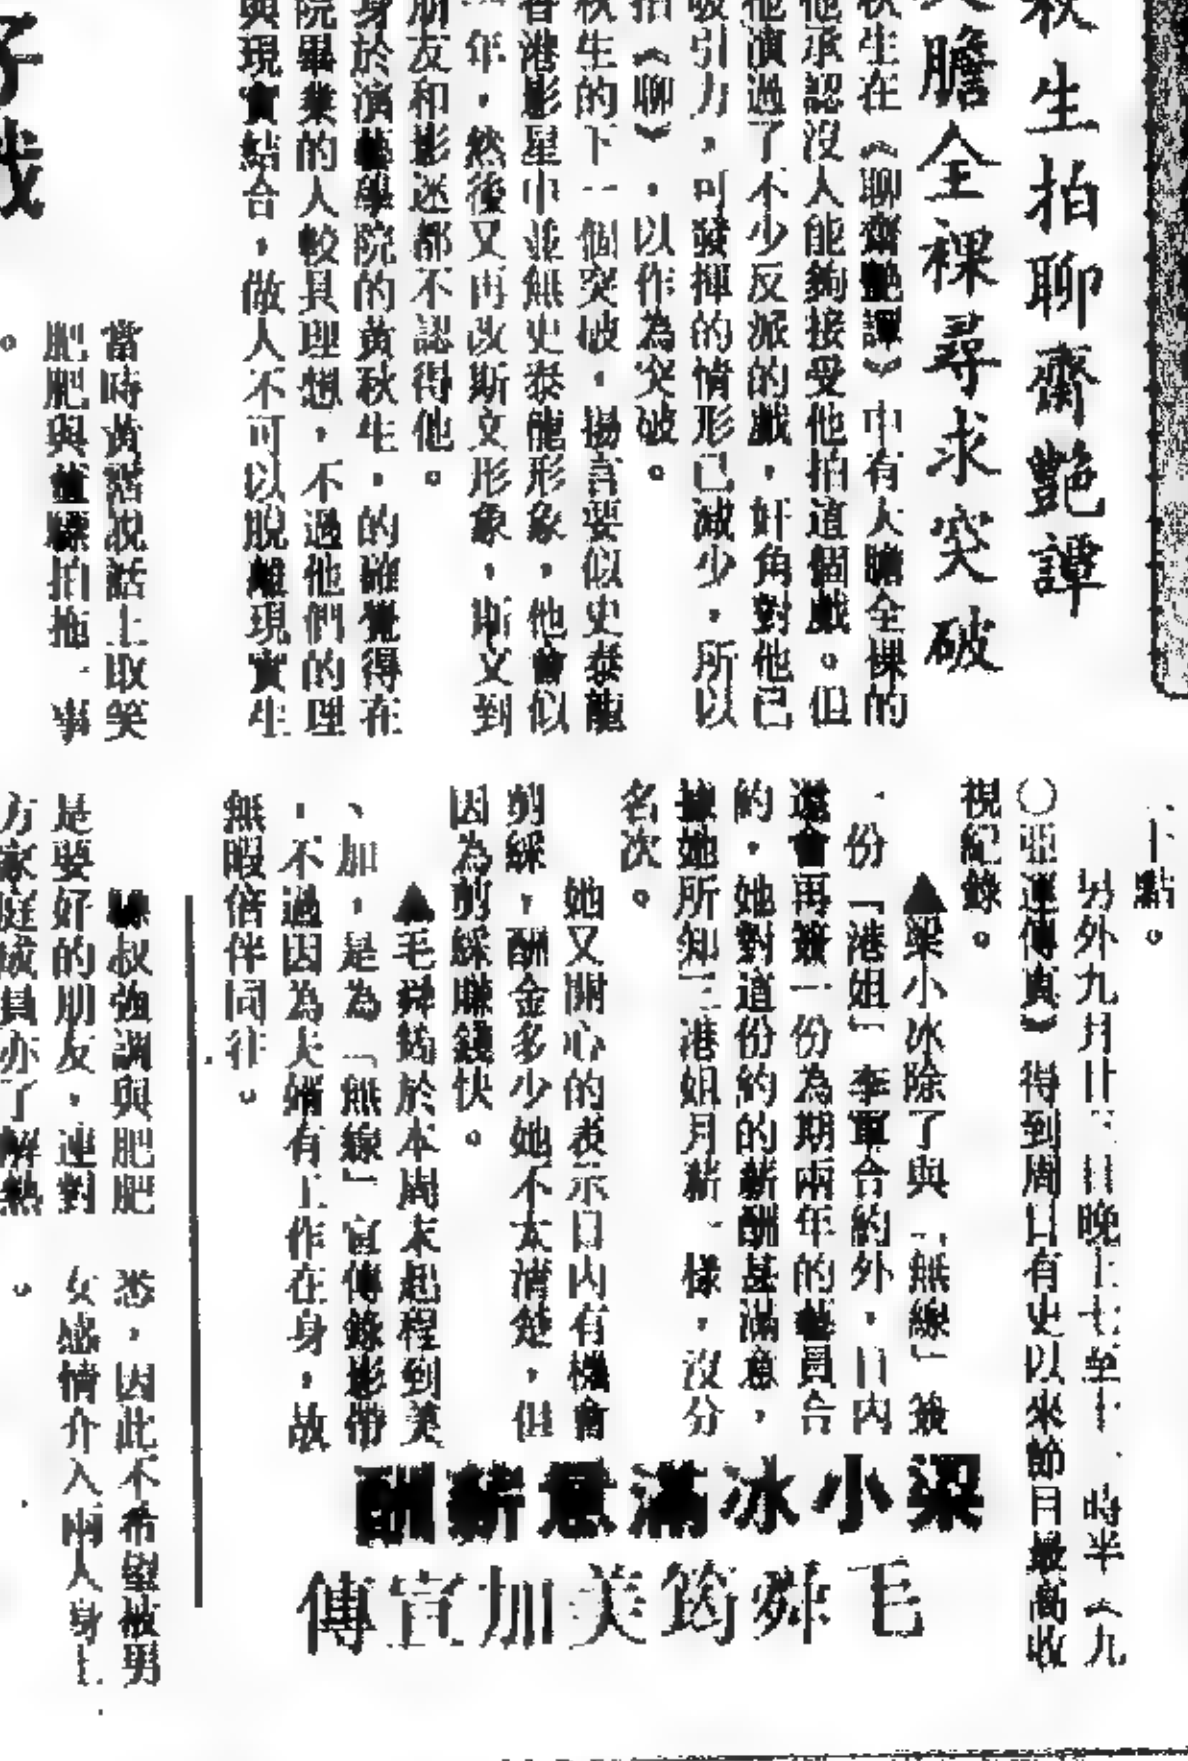 秋生拍聊齋艷譚
大膽全裸尋求突破
秋生在《聊齋艷譚》中有大膽全裸的
他承認沒人能夠接受他拍這個戲。但
他演過了不少反派的戲，奸角對他已
吸引力，可發揮的情形已減少，所以
拍《聊》，以作為突破。
秋生的下一個突破，揚言要似史泰龍
香港影星中並無史泰龍形象，他會似
年，然後又再改斯文形象，斯文到
朋友和影迷都不認得他。
身於演藝學院的黃秋生，的確覺得在
院畢業的人較具理想，不過他們的理
與現實結合，做人不可以脫離現實生
當時黃霑說話上取笑
肥肥與董驃拍拖一事
。
子戲
十點。
另外九月廿三日晚上七至十一時半《九
〇亞運傳真》得到周日有史以來節目最高收
視紀錄。
▲梁小冰除了與「無線」簽
一份「港姐」李軍合約外，日內
還會再簽一份為期兩年的藝員合
約，她對這份約的薪酬甚滿意，
據她所知三港姐月薪一樣，沒分
名次。
她又關心的表示日內有機會
剪綵，酬金多少她不太清楚，但
因為剪綵賺錢快。
▲毛舜筠於本周末起程到美
、加，是為「無線」宣傳錄影帶
，不過因為夫婿有工作在身，故
無暇倍伴同往。
梁小冰滿意薪酬
毛舜筠美加宣傳
驃叔強調與肥肥
是要好的朋友，連對
方家庭成員亦了解熟
悉，因此不希望被男
女感情介入兩人身上
。